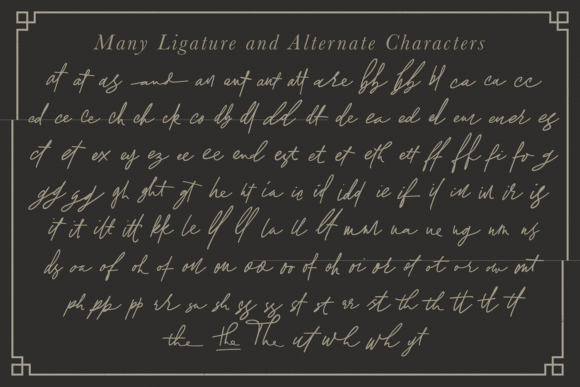 Many Ligature and Alternate Characters
at at as and an ant ant att are bb bb bl ca ca cc
cd ce ce ch ch ck co db dl dd dt de ea ed el em ener es
ct et ex ey ez ee ee end est et et eth ett ff ff fi fo g
gg gg gh ght gt he ht ia ic id idd ie if il in ir is
it it itt itt kk le ll ll la ll lt mm na ne ng nn ns
ds oa of oh of on on oo oo of oh oi or ot ot or ow ont
ph pp pp rr sa sh ss ss st st st th th tt tt tt
the the The ut wh wh yt